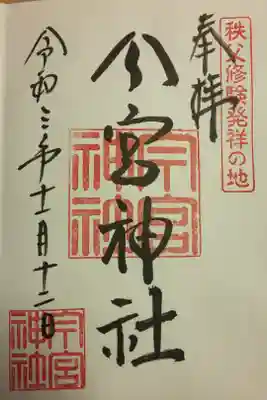 秩父修験発祥の地
奉拝
今宮神社
今宮神社
令和三年十一月十二日
今宮神社